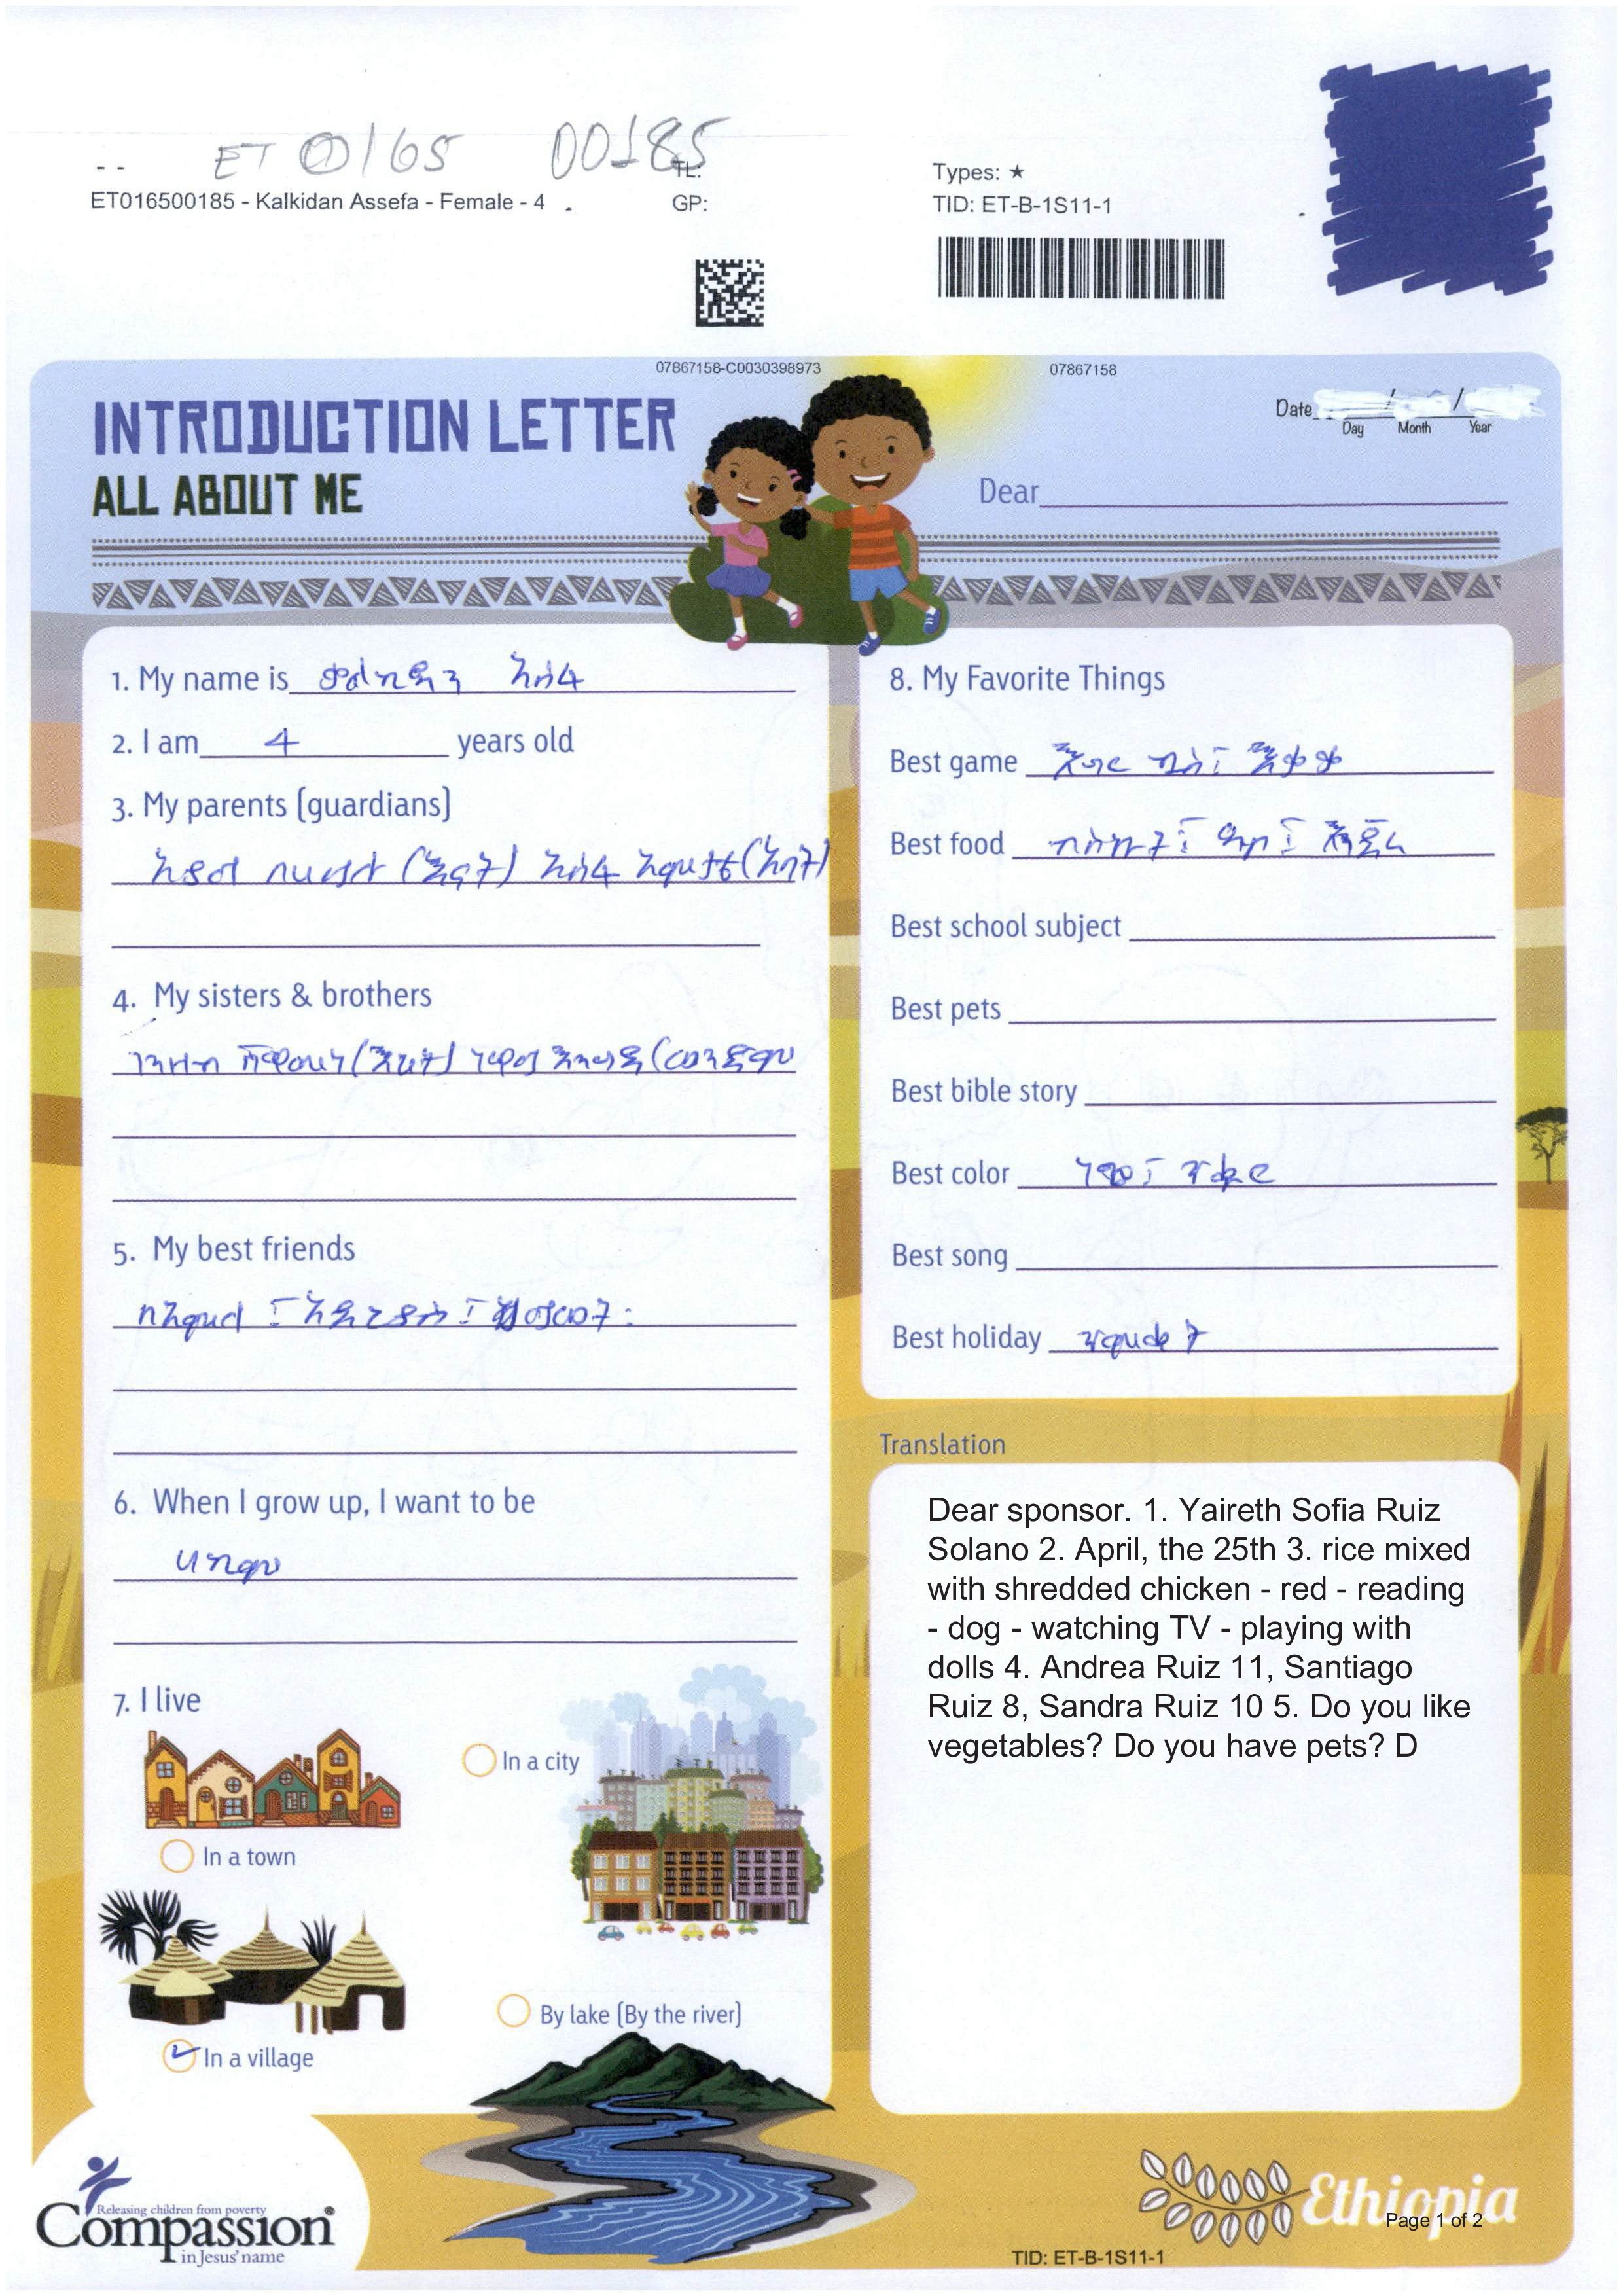 ET 0165 00185
- -
TL:
ET016500185 - Kalkidan Assefa - Female - 4
GP:
Types: ★
TID: ET-B-1S11-1
07867158-C0030398973
07867158
INTRODUCTION LETTER
ALL ABOUT ME
Date / /
Day Month Year
Dear
1. My name is ቃልኪዳን አሰፋ
2. I am 4 years old
3. My parents (guardians)
(እናት) አሰፋ (አባት)
4. My sisters & brothers
(እህት)
5. My best friends
6. When I grow up, I want to be
ሀኪም
7. I live
In a city
In a town
By lake (By the river)
In a village
8. My Favorite Things
Best game
Best food
Best school subject
Best pets
Best bible story
Best color
Best song
Best holiday ጥምቀት
Translation
Dear sponsor. 1. Yaireth Sofia Ruiz
Solano 2. April, the 25th 3. rice mixed
with shredded chicken - red - reading
- dog - watching TV - playing with
dolls 4. Andrea Ruiz 11, Santiago
Ruiz 8, Sandra Ruiz 10 5. Do you like
vegetables? Do you have pets? D
Releasing children from poverty
Compassion®
in Jesus' name
Ethiopia
Page 1 of 2
TID: ET-B-1S11-1